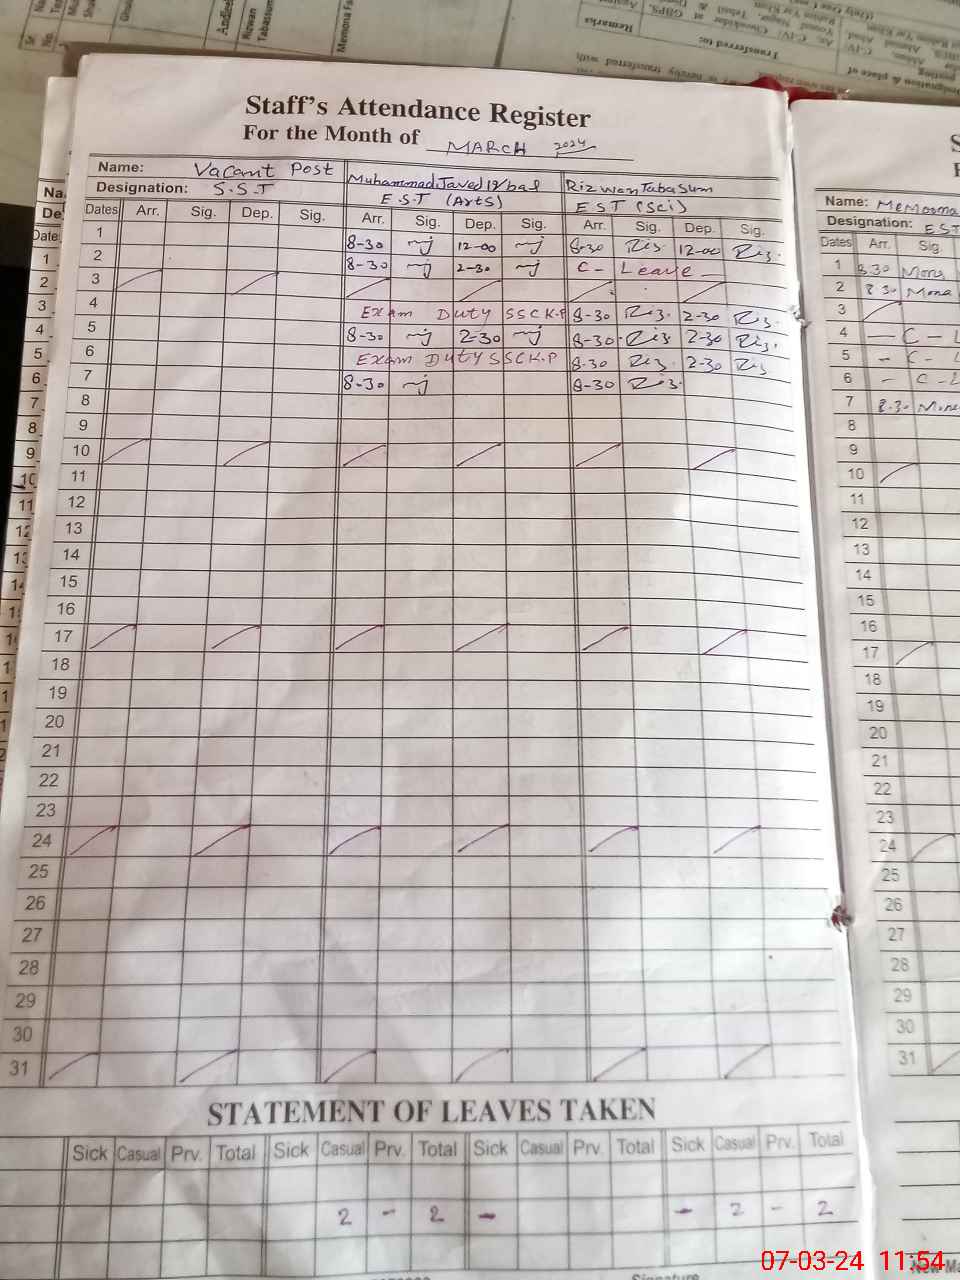 Staff's Attendance Register
For the Month of MARCH 2024
Name: Vacant Post Muhammad Javed Iqbal Rizwan Tabasum
Designation: S.S.T E.S.T (Arts) EST (Sci)
Dates Arr. Sig. Dep. Sig. Arr. Sig. Dep. Sig. Arr. Sig. Dep. Sig.
1 8-30 mj 12-00 mj 8-30 Riz. 12-00 Riz.
2 8-30 mj 2-30 mj C- Leave -
3
4 Exam Duty SSC K.P 8-30 Riz. 2-30 Riz.
5 8-30 mj 2-30 mj 8-30- Riz 2-30 Riz.
6 Exam Duty SSC K.P 8-30 Riz. 2-30 Riz
7 8-30 mj 8-30 Riz.
8
9
10
11
12
13
14
15
16
17
18
19
20
21
22
23
24
25
26
27
28
29
30
31
STATEMENT OF LEAVES TAKEN
Sick Casual Prv. Total Sick Casual Prv. Total Sick Casual Prv. Total Sick Casual Prv. Total
2 - 2 - - 2 - 2
Signature
Name:
Designation: EST
Dates Arr. Sig.
1 8.30 Mona
2 8.30 Mona
3
4 — C - L
5 - C - L
6 - C - L
7 8.30 Mona
8
9
10
11
12
13
14
15
16
17
18
19
20
21
22
23
24
25
26
27
28
29
30
31
Transferred to:
Remarks
07-03-24 11:54